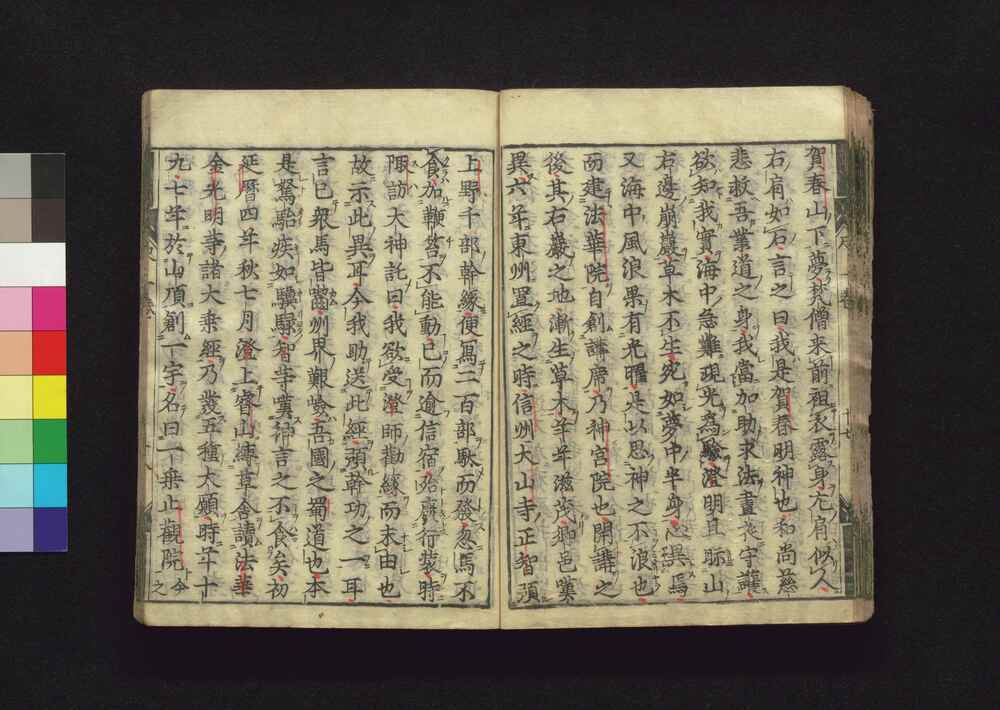 賀春山下夢梵僧来前袒衣露身左肩似人
右肩如石言之曰我是賀春明神也和尚慈
悲救吾業道之身我當加助求法晝夜守護
欲知我實海中急難現光為驗澄明旦眎山
右邊崩巖草木不生宛如夢中半身心異焉
又海中風浪果有光曜是以思神之不浪也
而建法華院自創講席乃神宮院也開講之
後其右巖之地漸生草木年年滋茂鄉邑嘆
異六年東州置經之時信州大山寺正智領
上野千部幹緣便馬二百部馱而發忽馬不
食加鞭笞不能動已而逾信宿殆廢行裝時
陬訪大神託曰我欲受澄師勸緣而未由也
故示此異耳今我助送此經預幹功之一耳
言已眾馬皆齕州界艱嶮吾國之蜀道也本
是駑駘疾如驥騄智等嘆神言之不食矣初
延曆四年秋七月澄上睿山縛草舍讀法華
金光明等諸大乘經乃發五種大願時年十
九七年於山頂創一宇名曰一乘止觀院
今
之